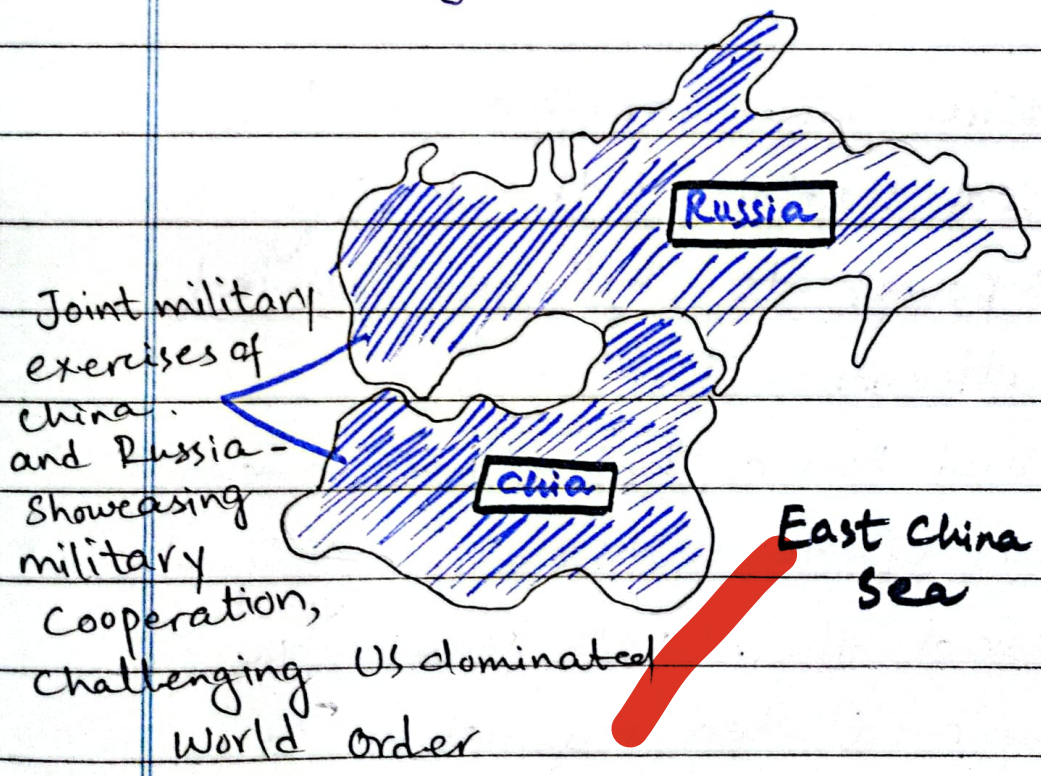 Russia
Joint military
exercises of
china.
and Russia -
Showcasing
military
Cooperation,
challenging US dominated
World Order
Chia
East China
Sea